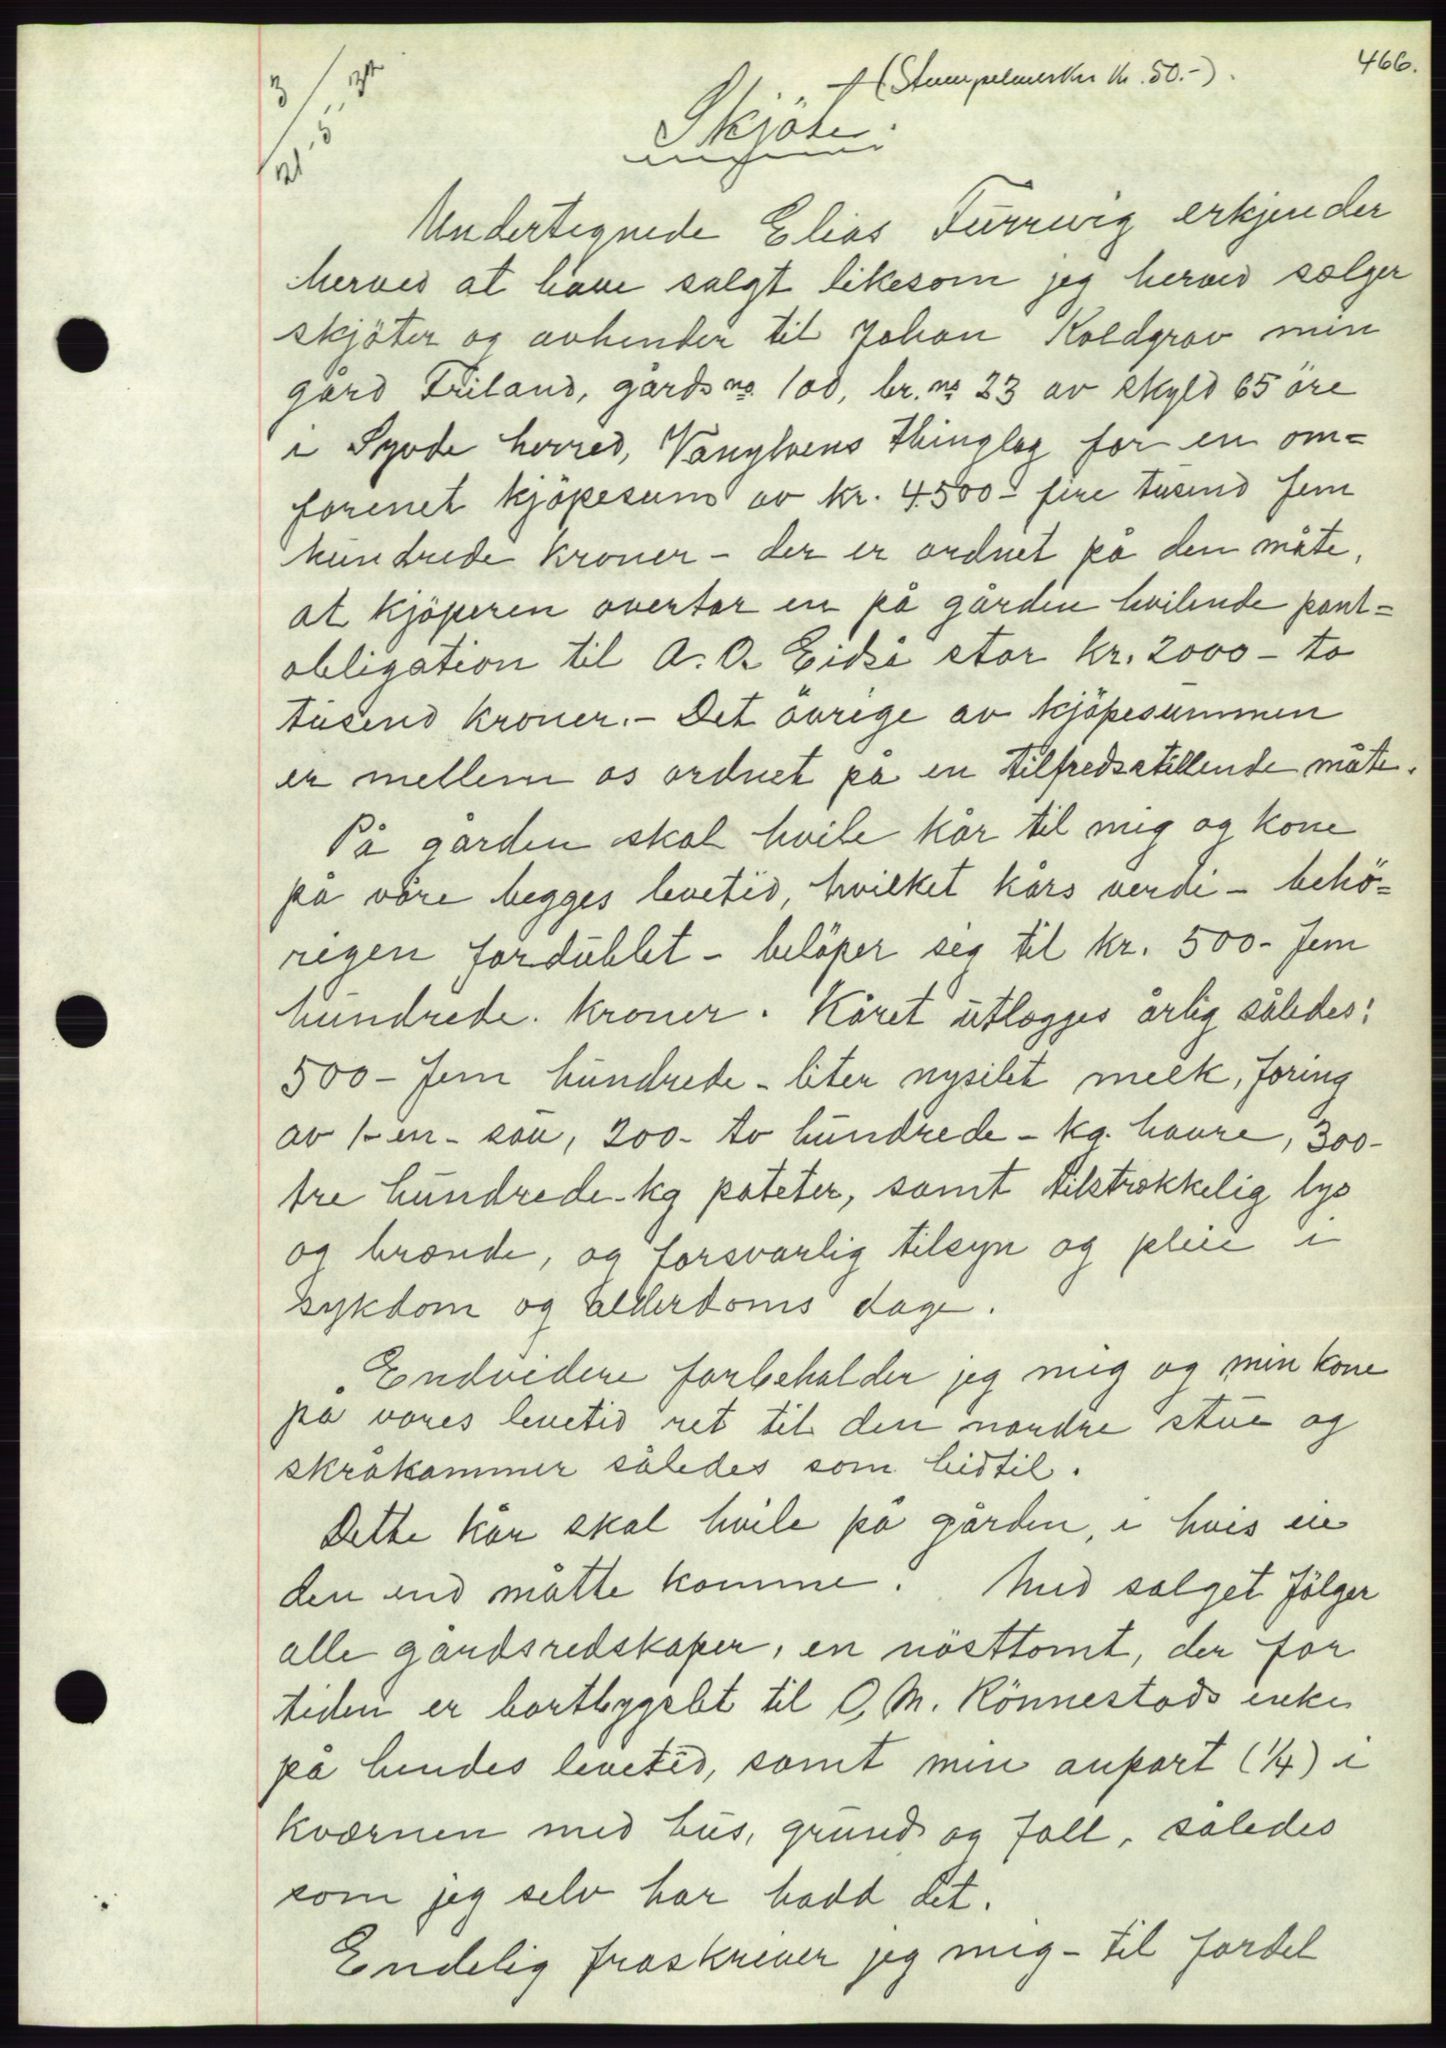 466.
+ (Stempelmerker kr. 50.-).
3/21-5-32
Skjöte.
Undertegnede Elias Furrevig erkjender
herved at have solgt likesom jeg herved sælger
skjöter og avhender til Johan Koldgrov min
gård Friland, gårds no. 100, br. no 23 av skyld 65 öre
i Syvde herred, Vanylvens thinglag for en om=
forenet kjöpesum av kr. 4500- fire tusend fem
hundrede kroner - der er ordnet på den måte,
at kjöperen overtar en på gården hvilende pant=
obligation til A. O. Eidså stor kr. 2000 - to
tusend kroner. - Det övrige av kjöpesummen
er mellem os ordnet på en tilfredsstillende måte.
På gården skal hvile kår til mig og kone
på våre begges levetid, hvilket kårs verdi - behö=
rigen fordublet - belöper sig til kr. 500- fem
hundrede. kroner. Kåret utlægges årlig således:
500 - fem hundrede - liter nysilet melk, foring
av 1-en- sau, 200- to hundrede - kg. havre, 300-
tre hundrede-kg poteter, samt tilstrækkelig lys
og brænde, og forsvarlig tilsyn og pleie i
sykdom og alderdoms dage.
Endvidere forbeholder jeg mig og min kone
på vores levetid ret til den nordre stue og
skråkammer således som hidtil.
Dette kår skal hvile på gården, i hvis eie
den end måtte komme. Med salget fölger
alle gårdsredskaper, en nösttomt, der for
tiden er bortbygslet til O. M. Rönnestads enke
på hendes levetid, samt min anpart (1/4) i
kværnen med hus, grund og fall, således
som jeg selv har hadd det.
Endelig fraskriver jeg mig - til fordel